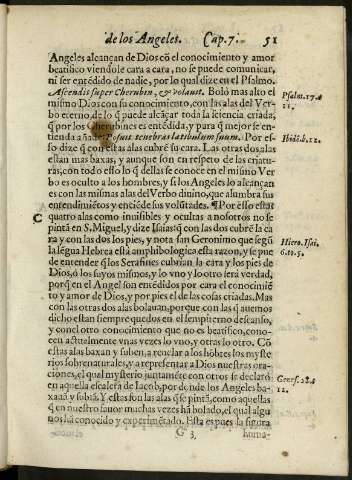 de los Angeles. Cap. 7. 51
Angeles alcançan de Dios cõ el conocimiento y amor
beatifico viendole cara a cara, no se puede comunicar,
ni ser entẽdido de nadie, por lo qual dize en el Psalmo.
Ascendit super Cherubin, & volauit. Boló mas alto el
mismo Dios con su conocimiento, con las alas del Ver-
bo eterno, de lo q̃ puede alcãçar toda la sciencia criada,
q̃ por los Cherubines es entẽdida, y para q̃ mejor se en-
tienda añade: Posuit tenebras latibulum suum. Por es-
so dize q̃ con estas alas cubrẽ su cara. Las otras dos alas
están mas baxas, y aunque son en respeto de las criatu-
ras, con todo esso lo q̃ dellas se conoce en el mismo Ver
bo es oculto a los hombres, y si los Angeles lo alcançan
es con las mismas alas del Verbo diuino, que alumbra sus
entendimiẽtos y enciẽde sus volũtades. ¶ Por esso estas
quatro alas como inuisibles y ocultas a nosotros no se
pintã en S. Miguel, y dize Isaias q̃ con las dos cubrẽ la ca
ra y con las dos los pies, y nota san Geronimo que segũ
la lẽgua Hebrea està amphibologica esta razon, y se pue
de entender q̃ los Serafines cubrian la cara y los pies de
Dios, ó los suyos mismos, y lo vno y lo otro será verdad,
porq̃ en el Angel son entẽdidos por cara el conocimiẽ
to y amor de Dios, y por pies el de las cosas criadas. Mas
con las otras dos alas bolauan, porque con las q̃ auemos
dicho están siempre quedos en el sempiterno descanso,
y con el otro conocimiento que no es beatifico, cono-
cen actualmente vnas vezes lo vno, y otras lo otro. Cõ
estas alas baxan y suben, a reuelar a los hõbres los myste
rios sobrenaturales, y a representar a Dios nuestras ora-
ciones, el qual mysterio juntamẽte con otros se declaró
en aquella escalera de Iacob, por donde los Angeles ba-
xauã y subiã. Y estas son las alas q̃ se pintã, como aquellas
q̃ en nuestro fauor muchas vezes hã bolado, el qual algu
nos hã conocido y experimẽtado. Esta es pues la figura
G 3 huma-
Psalm. 17. a
11.
Ibidẽ. b. 12.
C
Hiero. Isai.
6. to. 5.
Genes. 28. b
12.